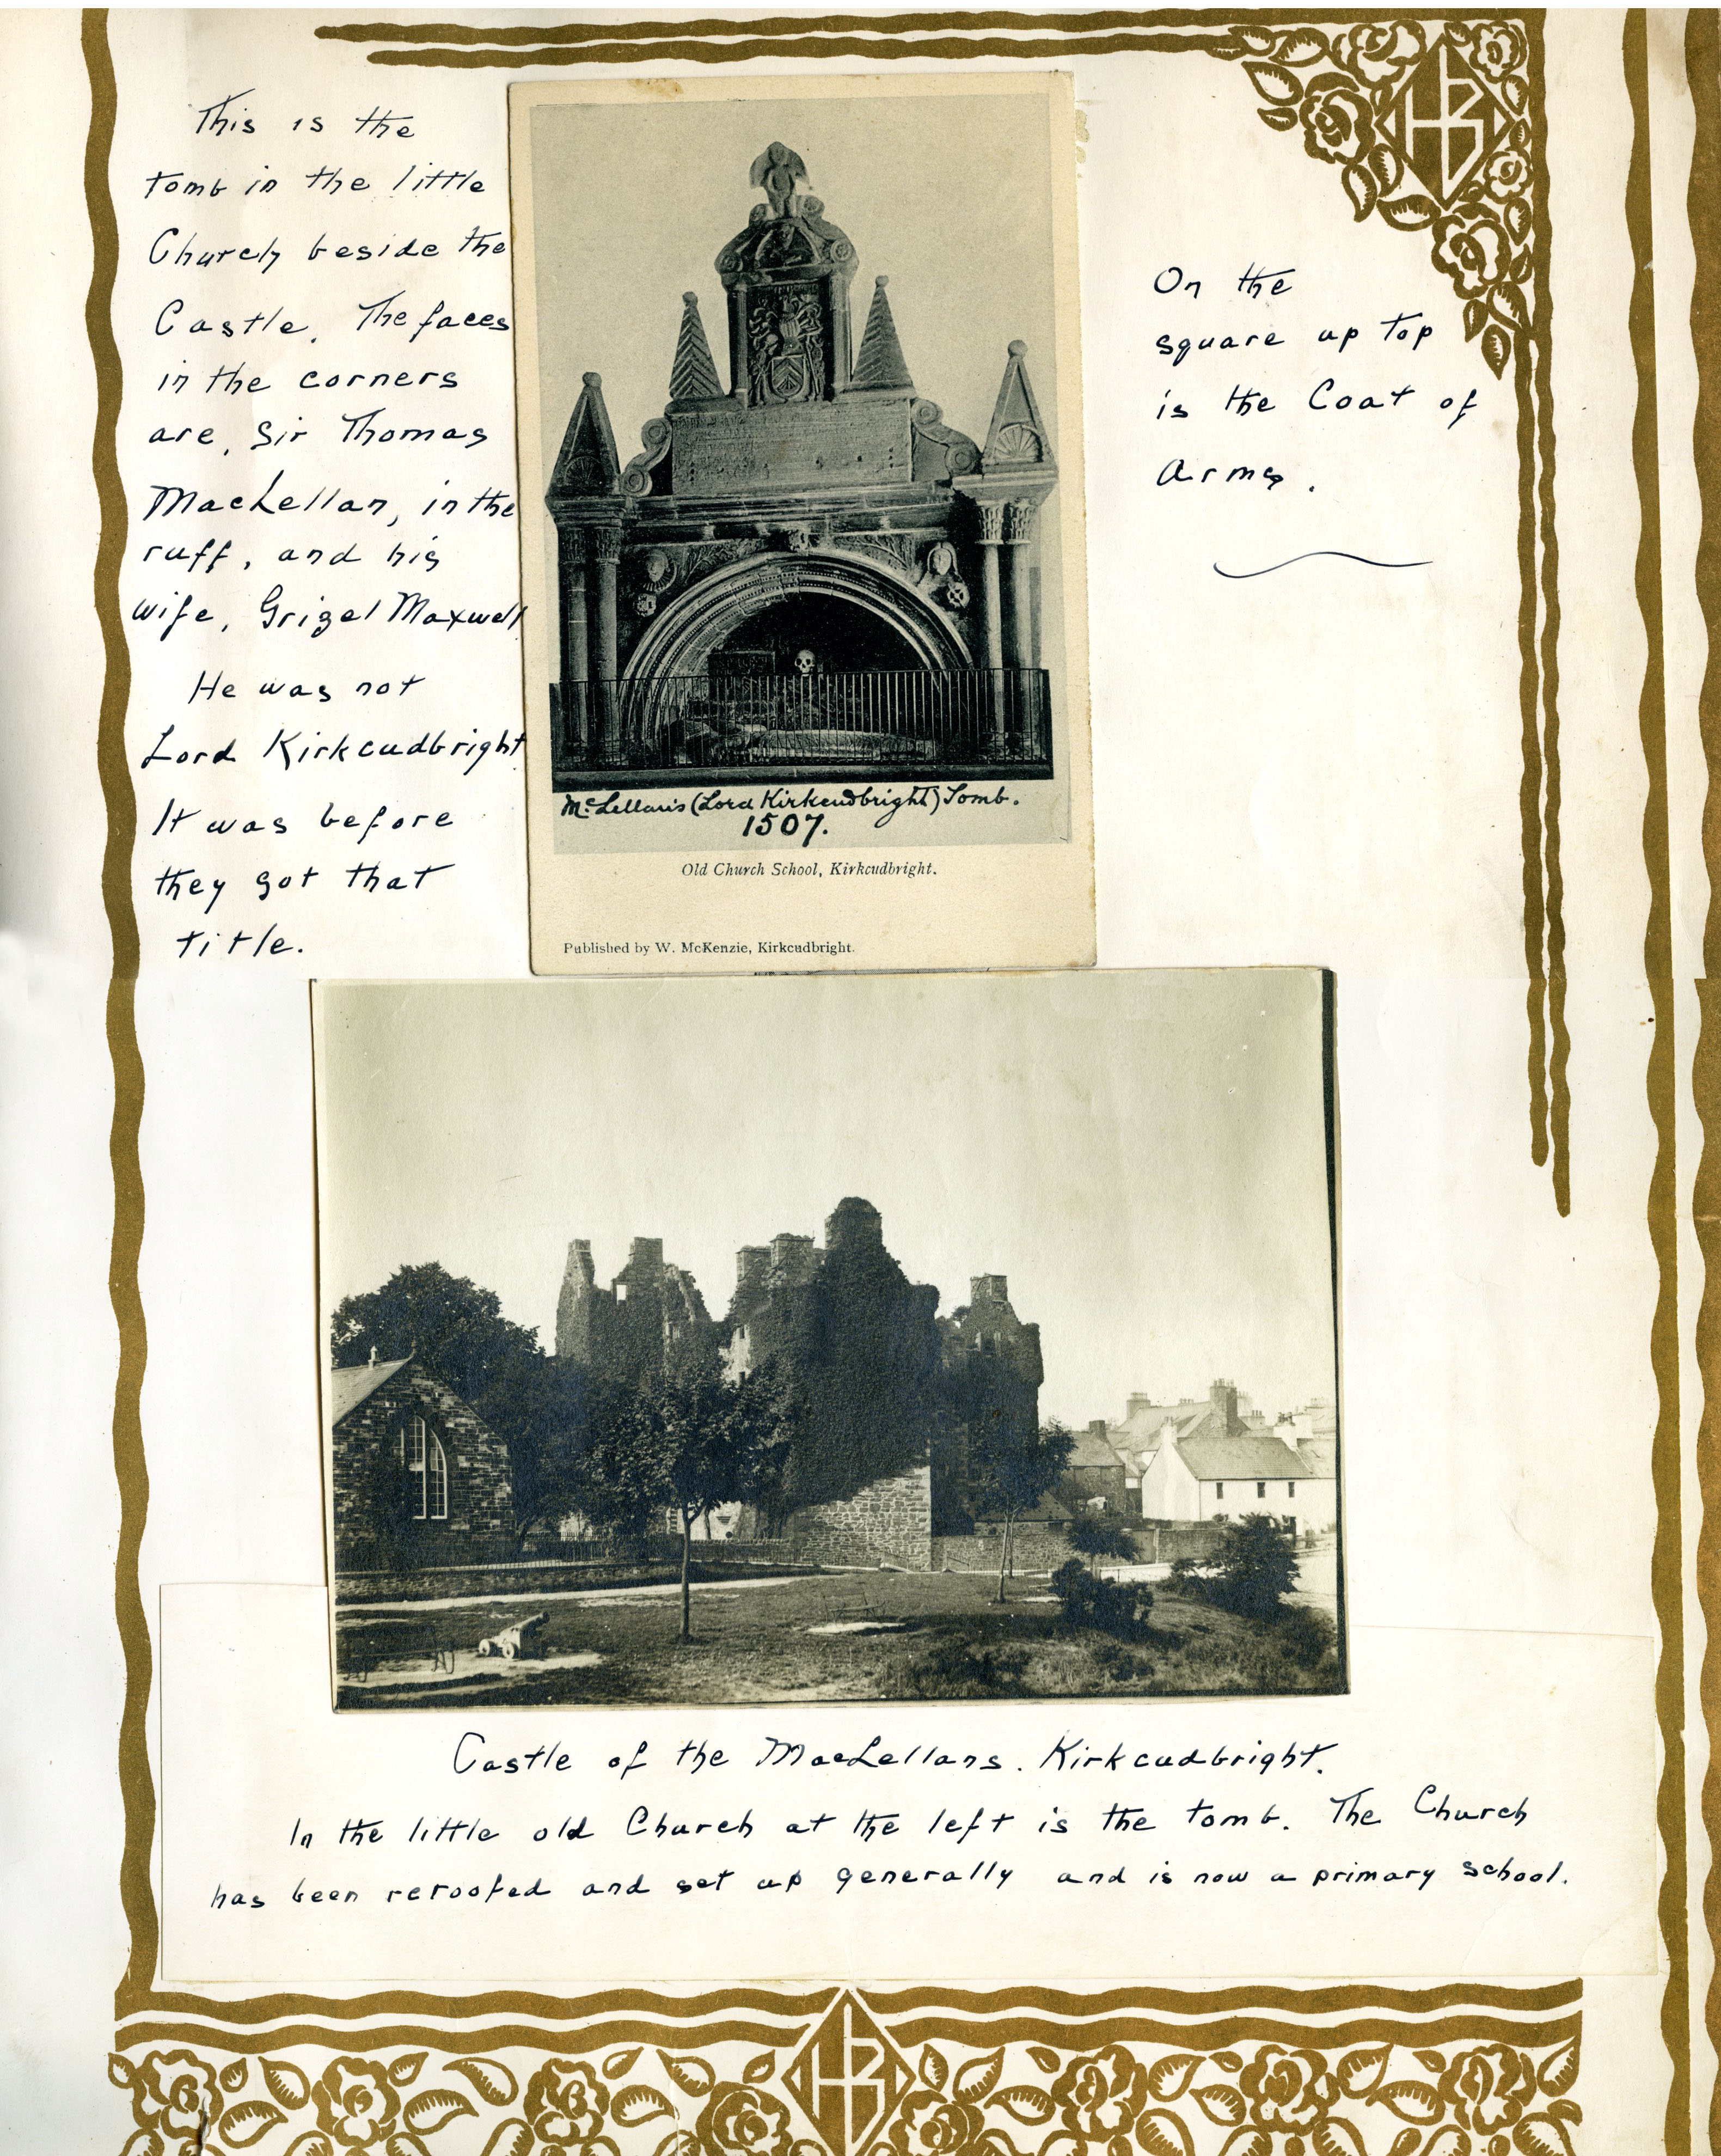 This is the
tomb in the little
Church beside the
Castle. The faces
in the corners
are, Sir Thomas
MacLellan, in the
ruff, and his
wife, Grizel Maxwell
He was not
Lord Kirkcudbright
It was before
they got that
title.
McLellan's (Lord Kirkcudbright) Tomb.
1507.
Old Church School, Kirkcudbright.
Published by W. McKenzie, Kirkcudbright.
On the
square up top
is the Coat of
Arms.
Castle of the MacLellans. Kirkcudbright.
In the little old Church at the left is the tomb. The Church
has been reroofed and set up generally and is now a primary school.